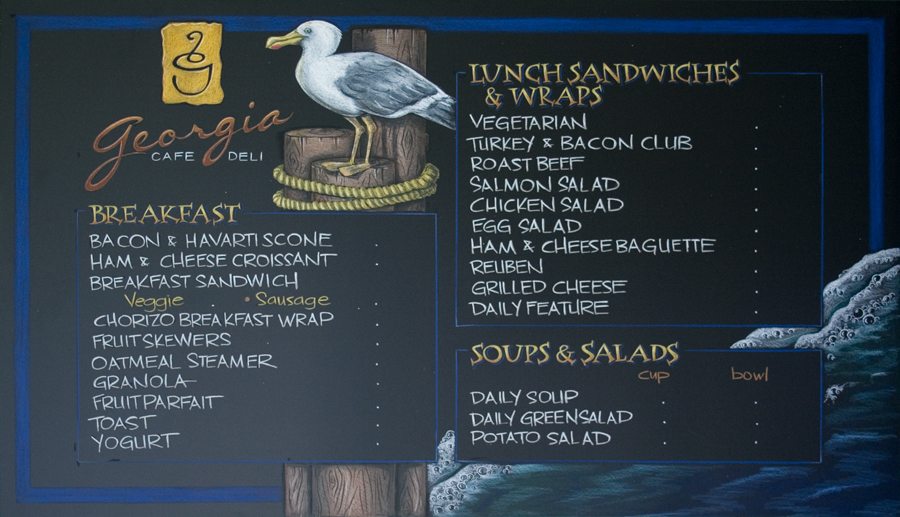 Georgia
CAFE DELI
BREAKFAST
BACON & HAVARTI SCONE
HAM & CHEESE CROISSANT
BREAKFAST SANDWICH
Veggie . • Sausage
CHORIZO BREAKFAST WRAP
FRUIT SKEWERS
OATMEAL STEAMER
GRANOLA
FRUIT PARFAIT
TOAST
YOGURT
LUNCH SANDWICHES
& WRAPS
VEGETARIAN
TURKEY & BACON CLUB
ROAST BEEF
SALMON SALAD
CHICKEN SALAD
EGG SALAD
HAM & CHEESE BAGUETTE
REUBEN
GRILLED CHEESE
DAILY FEATURE
SOUPS & SALADS
cup bowl
DAILY SOUP
DAILY GREEN SALAD
POTATO SALAD